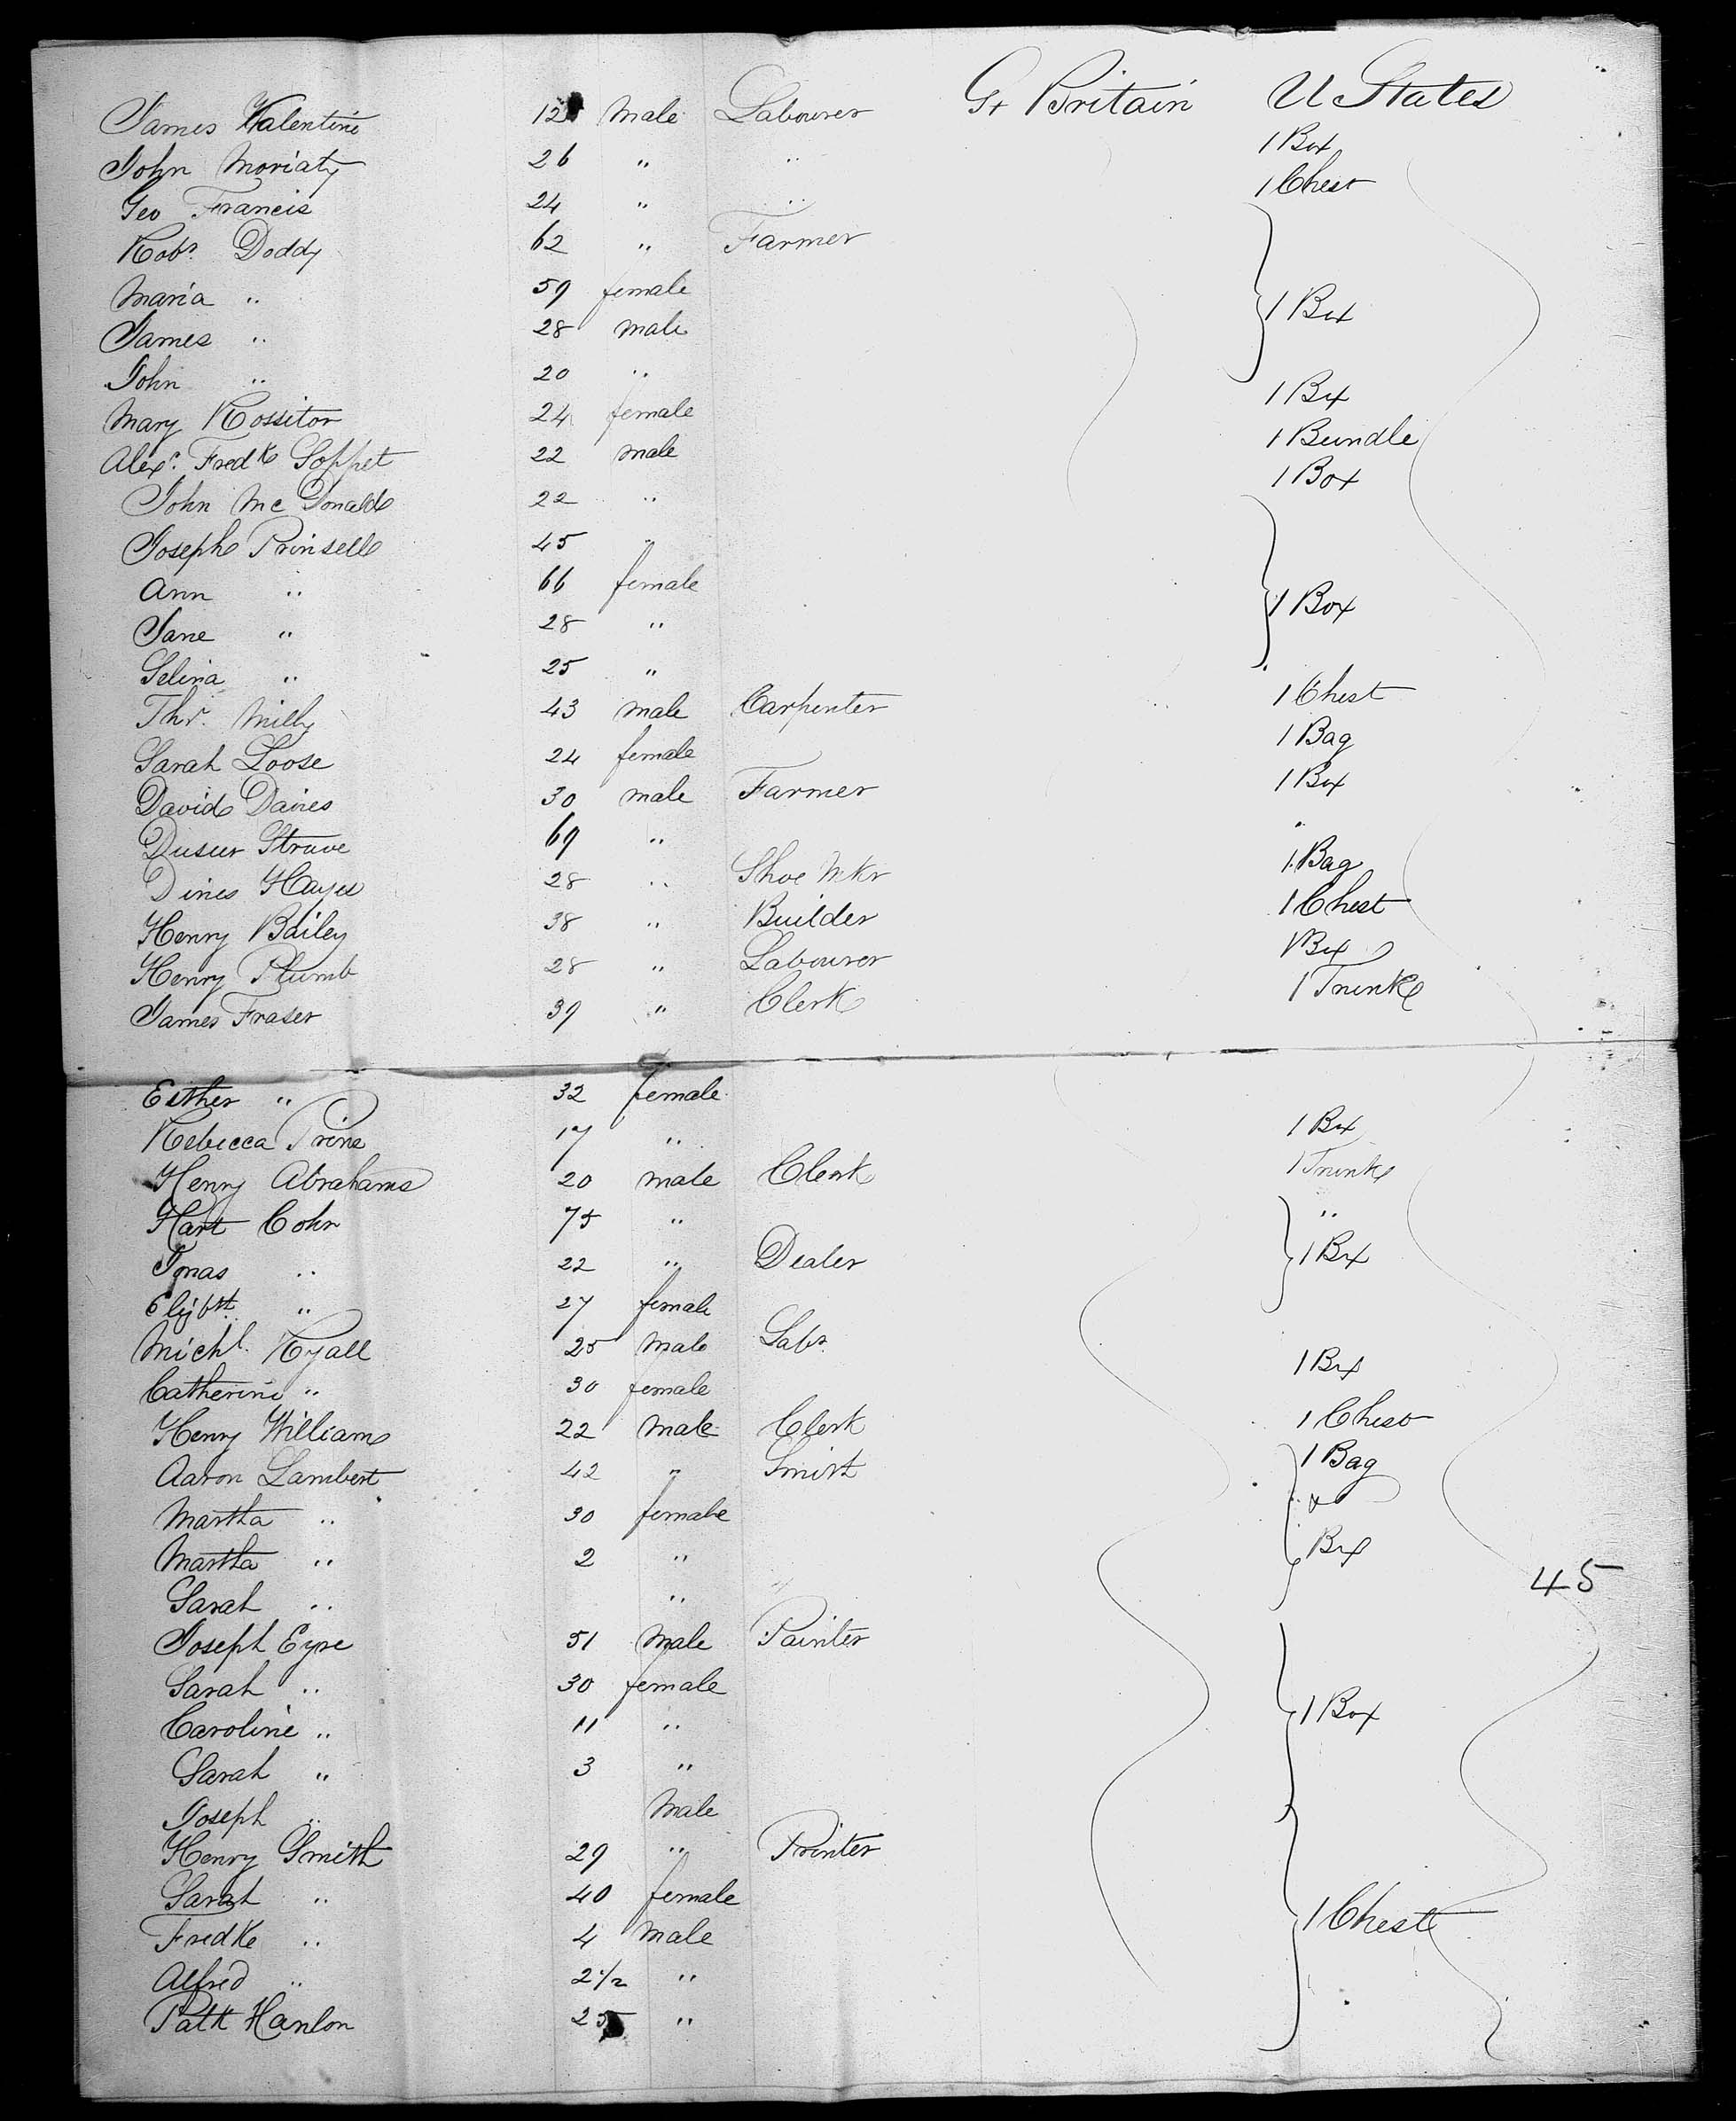 James Valentine 12 male Labourer Gt Britain U States
John Moriaty 26 " " 1 Box
Geo Francis 24 " " 1 Chest
Robt. Doddy 62 " Farmer
Maria " 59 female
James " 28 male 1 Box
John " 20 "
Mary Rossitor 24 female 1 Box
Alexr. Fredk Soppet 22 male 1 Bundle
John Mc Donald 22 " 1 Box
Joseph Prinsell 45 "
Ann " 66 female
Jane " 28 " 1 Box
Selina " 25 "
Thos. Milly 43 male Carpenter 1 Chest
Sarah Loose 24 female 1 Bag
David Davies 30 male Farmer 1 Box
Struve 69 " "
Dines Hayes 28 " Shoe Mkr 1 Bag
Henry Bailey 38 " Builder 1 Chest
Henry Plumb 28 " Labourer 1 Box
James Fraser 39 " Clerk 1 Trunk
Esther " 32 female
Rebecca Prine 17 " 1 Box
Henry Abrahams 20 male Clerk 1 Trunk
Hart Cohn 75 " "
Jonas " 22 " Dealer 1 Box
Elizbth " 27 female
Michl. Ryall 25 male Labr.
Catherine " 30 female 1 Box
Henry Williams 22 male Clerk 1 Chest
Aaron Lambert 42 " Smith 1 Bag
Martha " 30 female &
Martha " 2 " Box
Sarah " " 45
Joseph Eyre 51 male Painter
Sarah " 30 female
Caroline " 11 " 1 Box
Sarah " 3 "
Joseph " male
Henry Smith 29 " Printer
Sarah " 40 female
Fredk " 4 male 1 Chest
Alfred " 2 1/2 "
Patk Hanlon 25 "